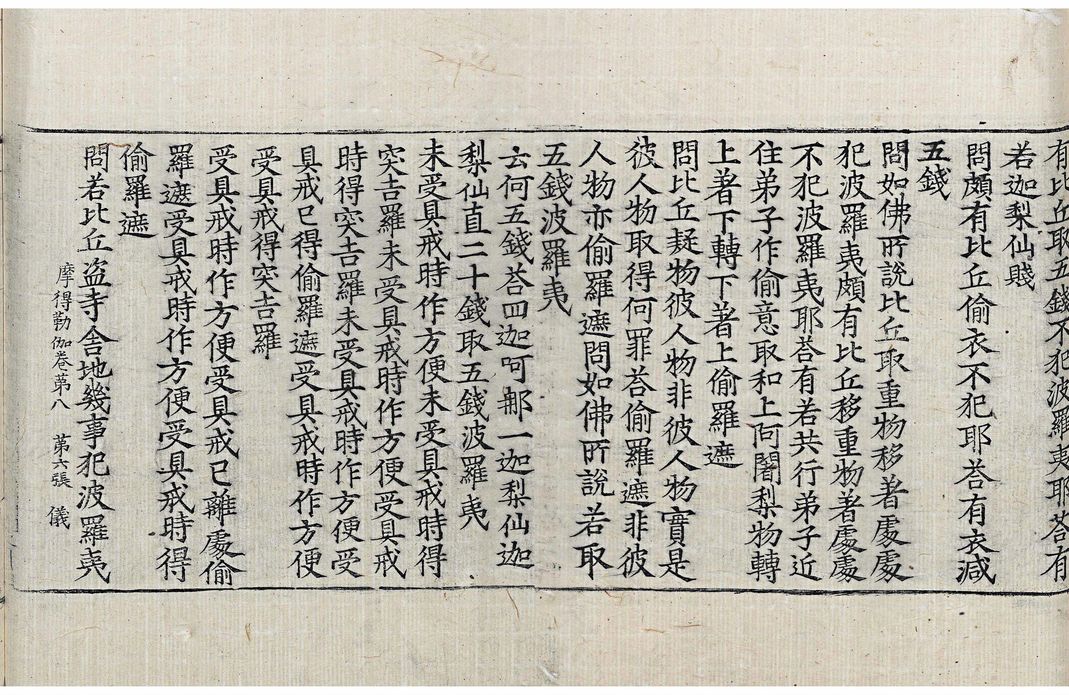 有比丘取五錢不犯波羅夷耶荅有
若迦梨仙賤
問頗有比丘偷衣不犯耶荅有衣減
五錢
問如佛所說比丘取重物移著處處
犯波羅夷頗有比丘移重物著處處
不犯波羅夷耶荅有若共行弟子近
住弟子作偷意取和上阿闍梨物轉
上著下轉下著上偷羅遮
問比丘疑物彼人物非彼人物實是
彼人物取得何罪荅偷羅遮非彼
人物亦偷羅遮問如佛所說若取
五錢波羅夷
云何五錢荅四迦呵那一迦梨仙迦
梨仙直二十錢取五錢波羅夷
未受具戒時作方便未受具戒時得
突吉羅未受具戒時作方便受具戒
時得突吉羅未受具戒時作方便受
具戒已得偷羅遮受具戒時作方便
受具戒得突吉羅
受具戒時作方便受具戒已離處偷
羅遮受具戒時作方便受具戒時得
偷羅遮
問若比丘盜寺舍地幾事犯波羅夷
摩得勒伽卷第八 第六張 儀